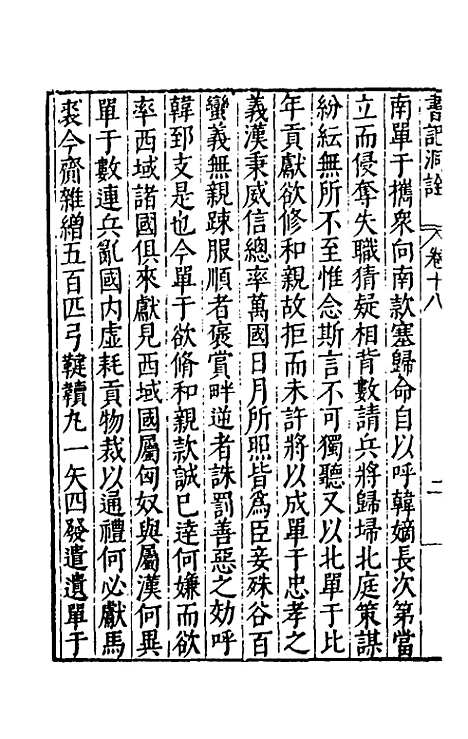 書記洞詮 卷十八 二
南單于攜衆向南款塞歸命自以呼韓嫡長次第當
立而侵奪失職猜疑相背數請兵將歸埽北庭策謀
紛紜無所不至惟念斯言不可獨聽又以北單于比
年貢獻欲修和親故拒而未許將以成單于忠孝之
義漢秉威信總率萬國日月所照皆爲臣妾殊俗百
蠻義無親踈服順者褒賞畔逆者誅罰善惡之効呼
韓郅支是也今單于欲脩和親款誠已達何嫌而欲
率西域諸國俱來獻見西域國屬匈奴與屬漢何異
單于數連兵亂國内虚耗貢物裁以通禮何必獻馬
裘今齎雜繒五百匹弓鞬韥丸一矢四發遣遺單于